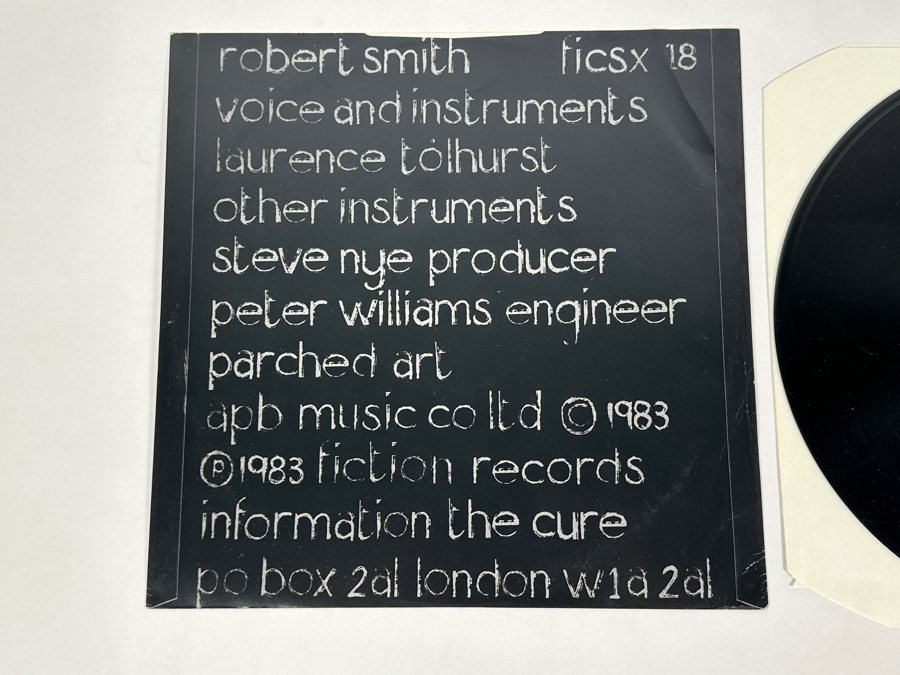 robert smith ficsx 18
voice and instruments
laurence tolhurst
other instruments
steve nye producer
peter williams engineer
parched art
apb music co ltd © 1983
℗ 1983 fiction records
information the cure
po box 2al london w1a 2al